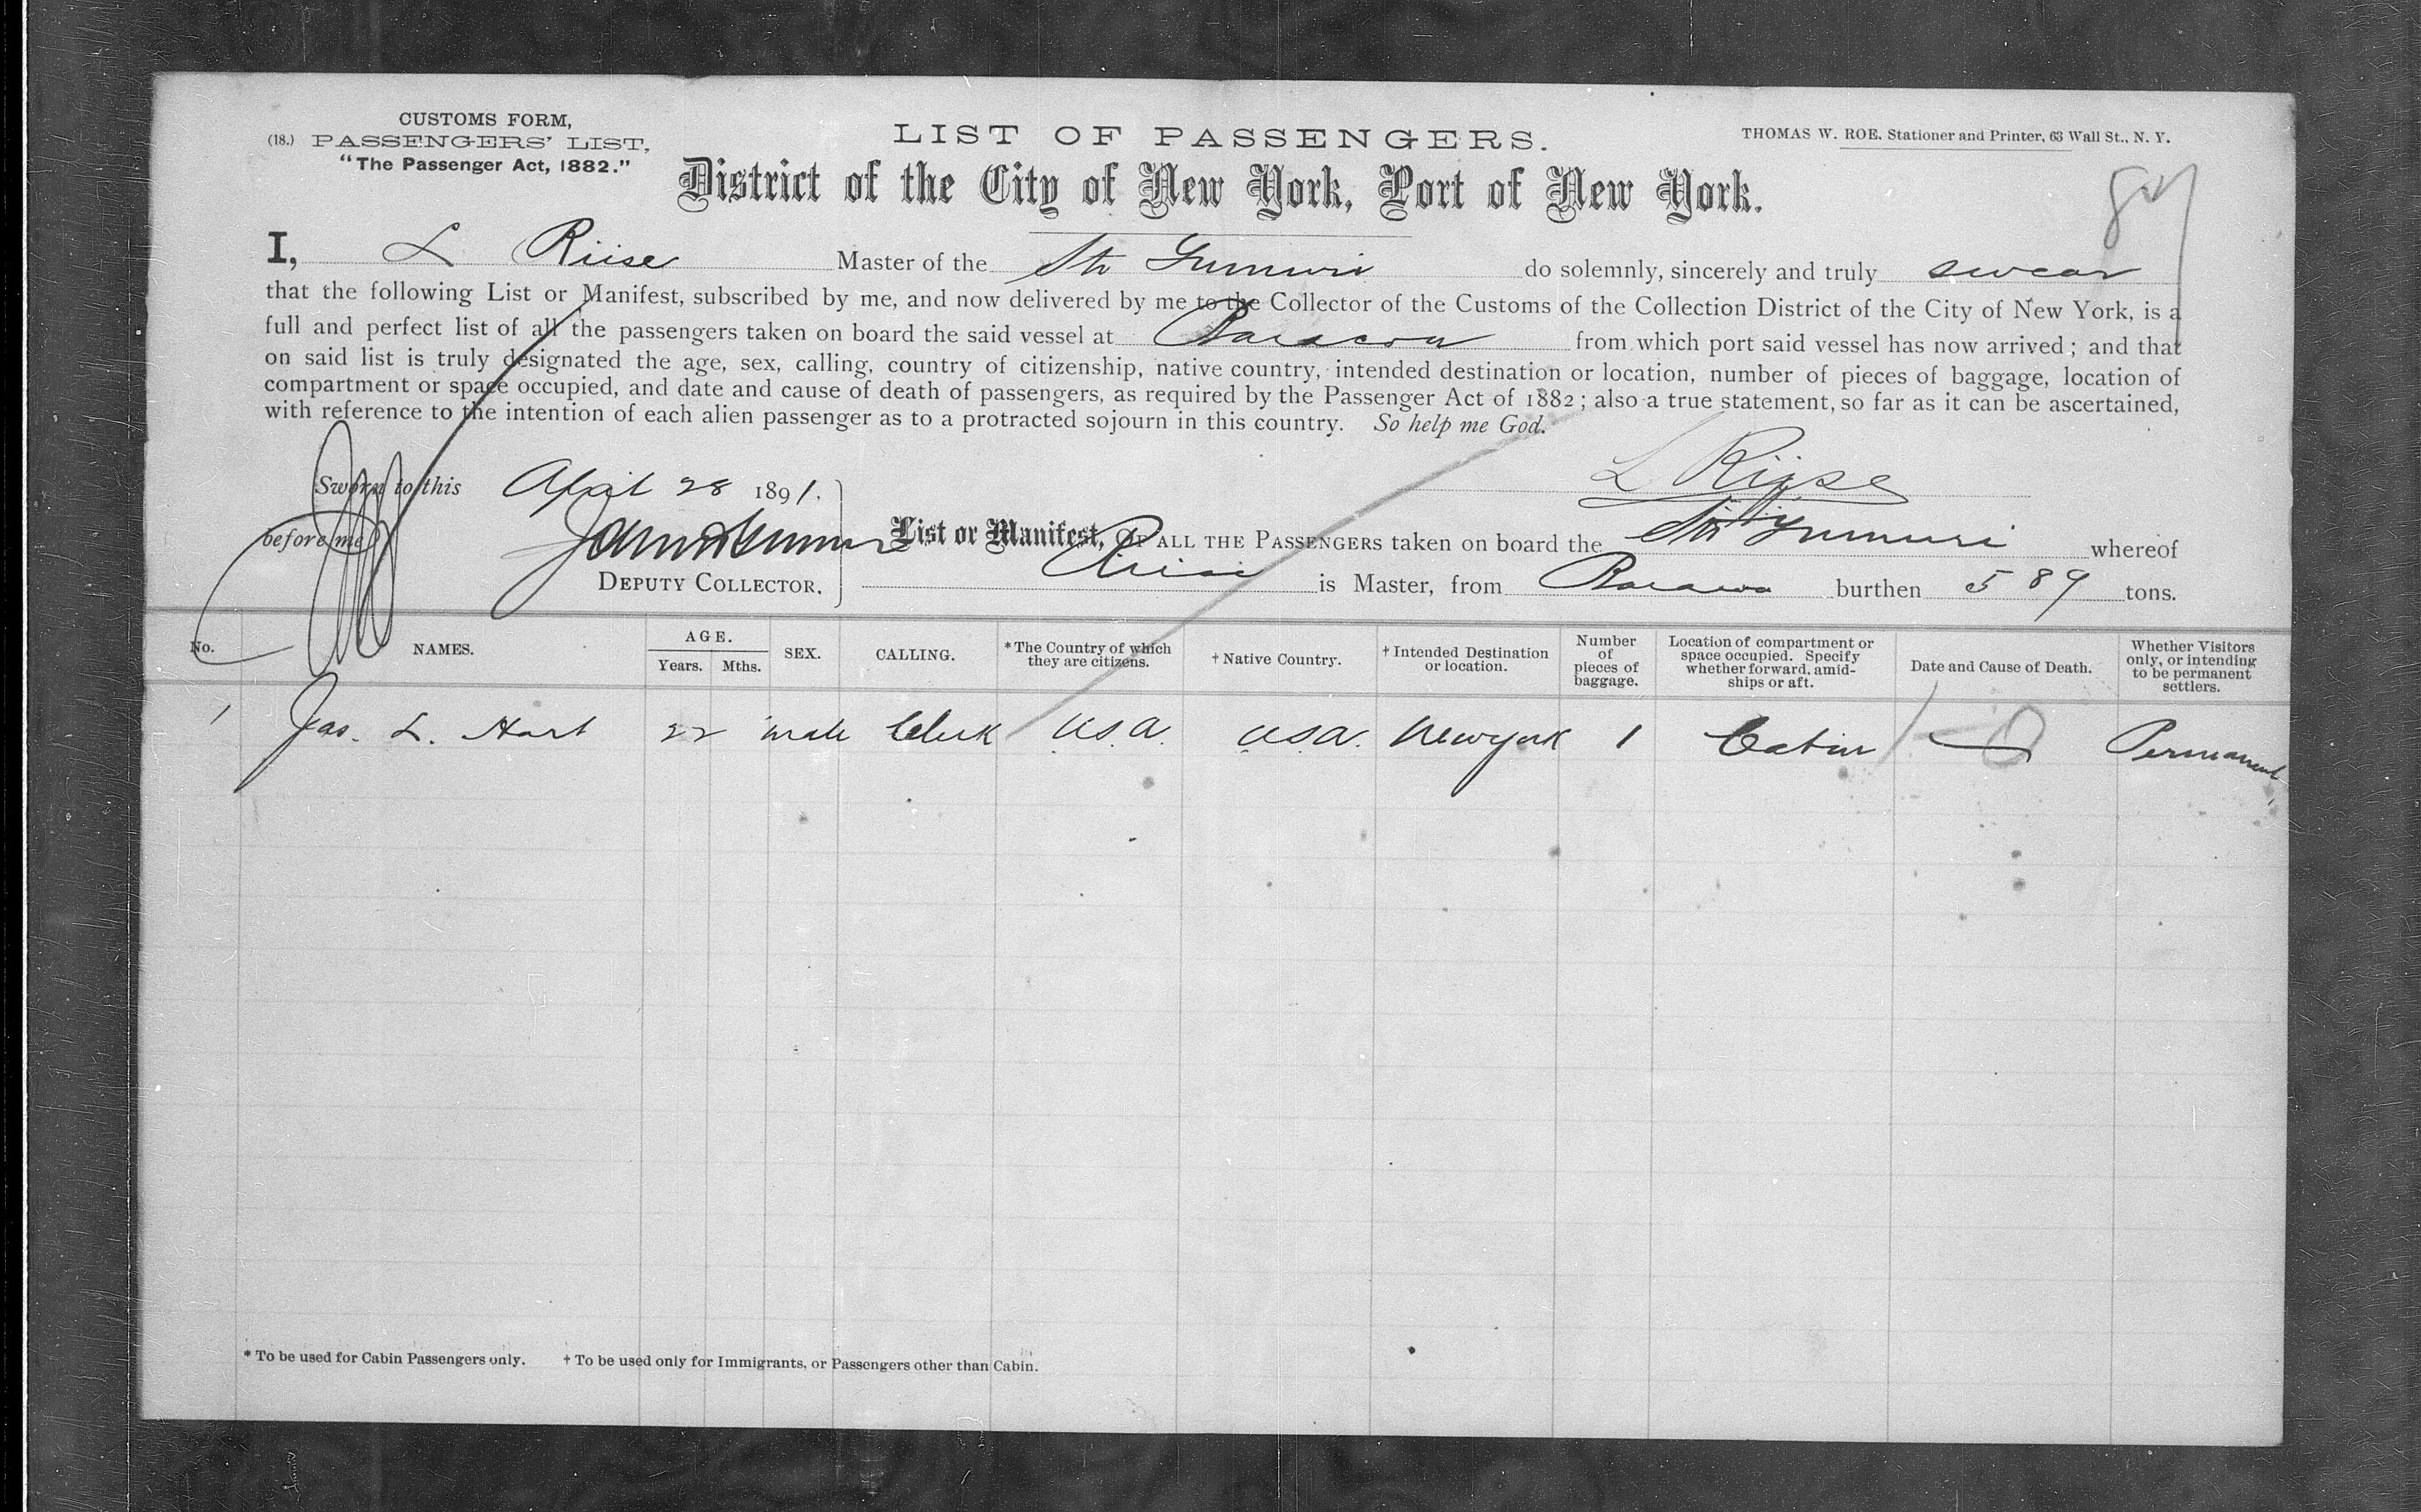 CUSTOMS FORM,
(18.) PASSENGERS' LIST,
"The Passenger Act, 1882."
LIST OF PASSENGERS.
THOMAS W. ROE, Stationer and Printer, 63 Wall St., N. Y.
District of the City of New York, Port of New York.
I, L Riise Master of the Str Yumuri do solemnly, sincerely and truly swear
that the following List or Manifest, subscribed by me, and now delivered by me to the Collector of the Customs of the Collection District of the City of New York, is a
full and perfect list of all the passengers taken on board the said vessel at Baracoa from which port said vessel has now arrived; and that
on said list is truly designated the age, sex, calling, country of citizenship, native country, intended destination or location, number of pieces of baggage, location of
compartment or space occupied, and date and cause of death of passengers, as required by the Passenger Act of 1882; also a true statement, so far as it can be ascertained,
with reference to the intention of each alien passenger as to a protracted sojourn in this country. So help me God.
L Riise
Sworn to this April 28 1891.
before me
DEPUTY COLLECTOR.
List or Manifest, OF ALL THE PASSENGERS taken on board the Str Yumuri whereof
Riise is Master, from Baracoa burthen 589 tons.
No. NAMES. AGE. Years. Mths. SEX. CALLING. * The Country of which they are citizens. † Native Country. † Intended Destination or location. Number of pieces of baggage. Location of compartment or space occupied. Specify whether forward, amidships or aft. Date and Cause of Death. Whether Visitors only, or intending to be permanent settlers.
1 Jas. L. Hart 22 male Clerk U.S.A. U.S.A. New york 1 Cabin Permanent
* To be used for Cabin Passengers only. † To be used only for Immigrants, or Passengers other than Cabin.